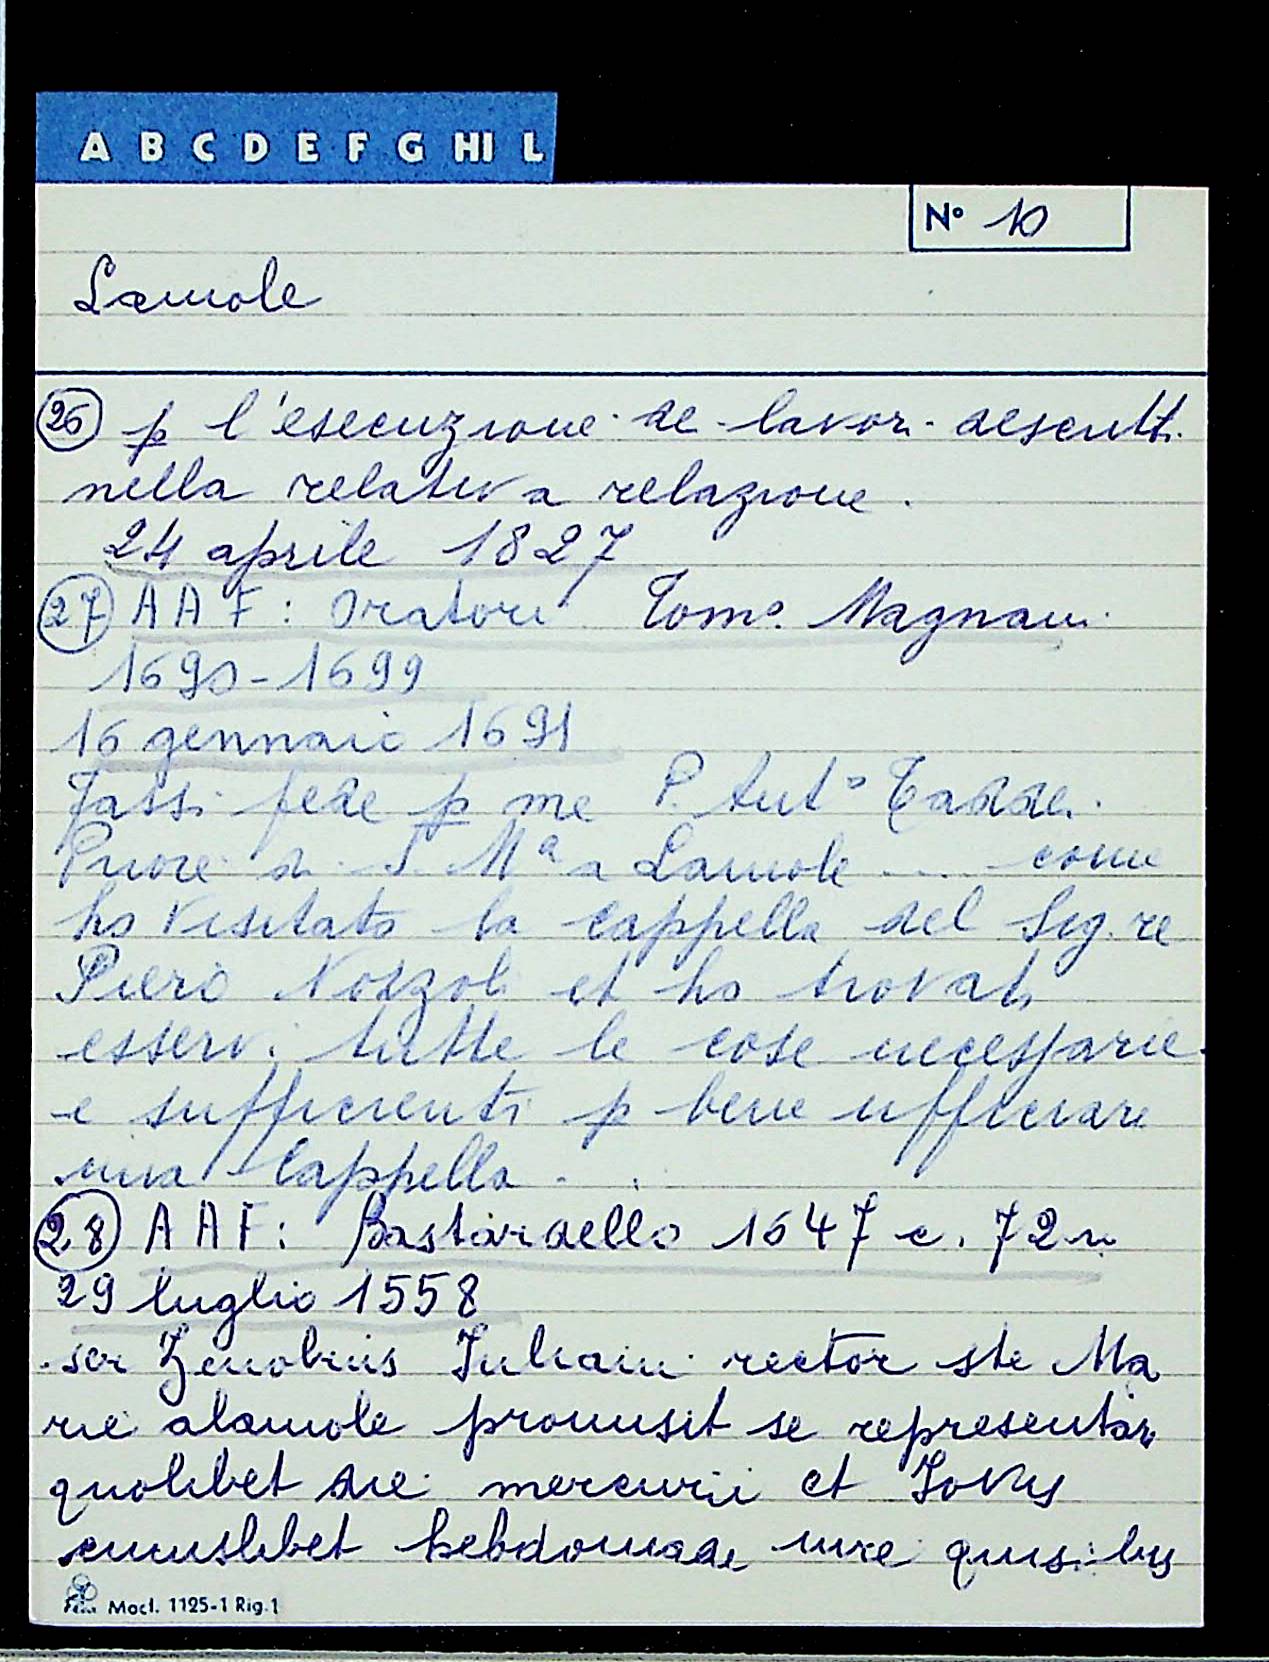 A B C D E F G HI L
N° 10
Lamole
26 p l'esecuzione de lavori descritti
nella relativa relazione.
24 aprile 1827
27 AAF: Oratori Tomo. Magnani
1690-1699
16 gennaio 1691
Fassi fede p me P. Ant° Taddei
Priore di S. Mª a Lamole .... come
ho visitato la cappella del Sig.re
Piero Nozzoli et ho trovato
esservi tutte le cose necessarie
e sufficienti p bene ufficiare
una Cappella . .
28 AAF: Bastardello 1647 c. 72
29 luglio 1558
ser Zenobius Juliani rector ste Ma
rie alamole promisit se representare
quolibet die mercurii et Jovis
cuiuslibet hebdomade
Mod. 1125-1 Rig.1